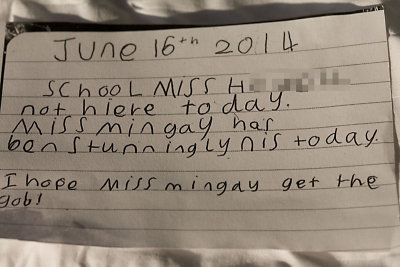 June 16th 2014
SCHOOL MISS H
not hiere to day.
Miss mingay has
ben stunningly nis today
I hope Miss mingay get the
gob!